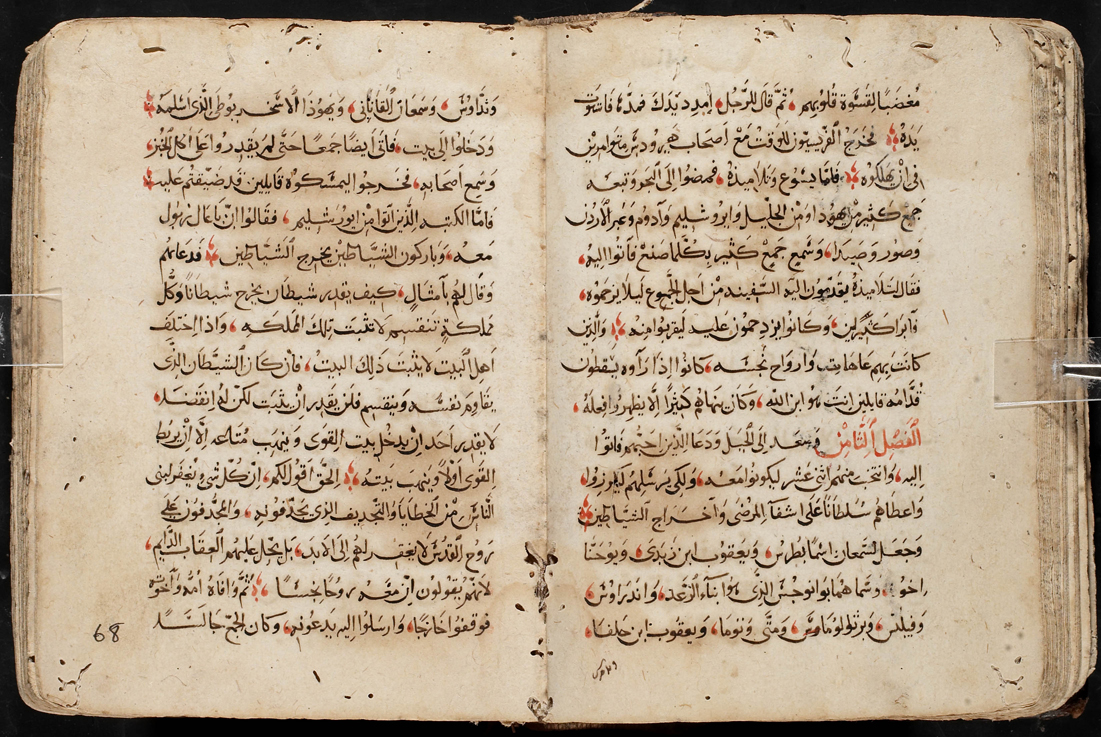 مغضبًا لقسوة قلوبهم، ثم قال للرجل، امدد يدك فمدّها، فاستوت
يده فخرج الفريسيون للوقت مع اصحاب هيرودس متوامرين
في ان يهلكوه فامّا يسوع وتلاميذه، فمضوا الى البحر وتبعه
جمع كثير من يهودا ومن الجليل وايروشليم وآدوم وعبر الاردن
وصور وصيدا، وسميع جميع كثير بكلما صنع فاتوا اليه،
فقال لتلاميذه يقدمون اليه السفينه من اجل الجموع ليلا يزحموه،
فابرا كثيرين، وكانوا يزدحمون عليه ليقربوا منه والذين
كانت بهم عاهات وارواح نجسه، كانوا اذا راوه يسقطون
قدامه قايلين انت هو ابن الله، وكان ينهاهم كثيرًا الّا يظهروا فعله،
الفصل الثامن وصعد الى الجبل ودعا الذين احبهم فاتوا
اليه، وانتخب منهم اثنى عشر ليكونوا معه، ولكي يرسلهم ليكرزوا،
واعطاهم سلطانًا على اشفآ المرضى واخراج الشياطين
وجعل لسمعان اسمًا بطرس، ويعقوب ابن زبدى، ويوحنا
اخوه، وسماهما بوانرجس الذي هو ابناء الرعد، واندراوس،
وفيلبس، وبرتولوماوس، ومتى، وتوما، ويعقوب ابن حلفا،
وتداوس، وسمعان القاناني، ويهوذا الاسخريوطى الذي اسلمه
ودخلوا الى بيت، فاتى ايضًا جمعًا حتى لم يقدروا على اكل الخبز،
وسمع اصحابه، فخرجوا ليمسكوه قايلين قد ضيقتم عليه
فامّا الكتبه الذين اتوا من ايورشليم، فقالوا انّ باعال زبول
معه، وباركون الشياطين يخرج الشياطين فدعاهم
وقال لهم بامثال، كيف يقدر شيطان يخرج شيطانًا وكل
مملكة تنقسم لا تثبت تلك المملكه، واذا اختلف
اهل البيت لا يثبت ذلك البيت، فان كان الشيطان الذي
يقاوم نفسه وينقسم فلن يقدر ان يثبت لكن له انقضا،
لا يقدر احد ان يدخل بيت القوى وينهب متاعه الّا ان يربط
القوى اولًا وينهب بيته الحق اقول لكم، ان كل شي يغفر لبنى
الناس من الخطايا والتجديف الذي يجدفونه، والمجدفون على
روح القدس لا يغفر لهم الى الابد، بل يحل عليهم العقاب الدايم،
لانهم يقولون ان معه روحًا نجسًا ثم وافاه امه واخوته
فوقفوا خارجًا، وارسلوا اليه يدعونه، وكان الجمع جالسًا
68